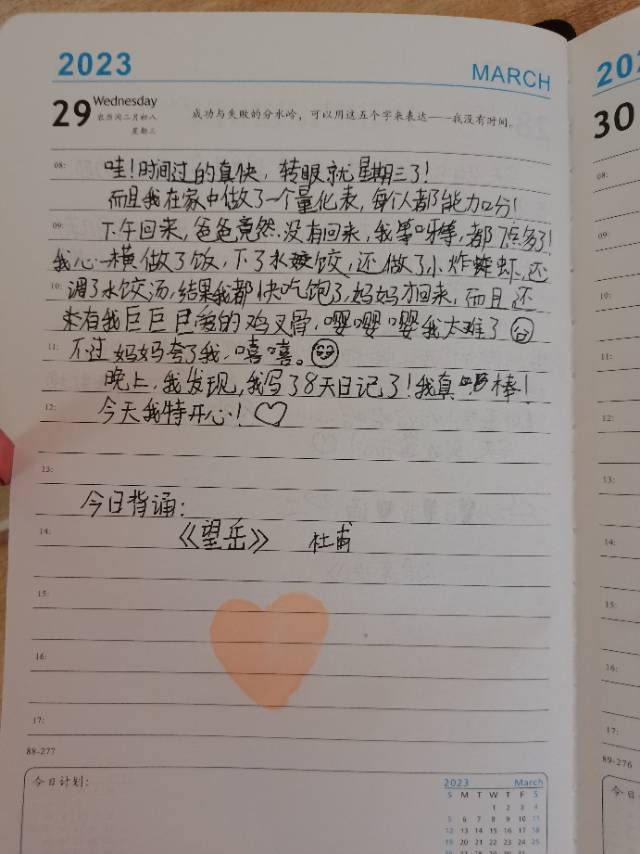 2023
MARCH
202
29 Wednesday
农历闰二月初八
星期三
成功与失败的分水岭，可以用这五个字来表达——我没有时间。
30
08: 哇！时间过的真快，转眼就星期三了！
而且我在家中做了一个量化表，每个人都能加分！
09: 下午回来，爸爸竟然没有回来，我等呀等，都
我心一横做了饭，下了水饺，还做了小炸虾，还
10: 调了水饺汤，结果我都快吃饱了，妈妈才回来，而且还
没有我巨巨巨爱的鸡叉骨，嘤嘤嘤我太难了
11: 不过妈妈夸了我，嘻嘻。
晚上，我发现，我写了8天日记了！我真棒！
12: 今天我特开心！
13:
今日背诵：
14: 《望岳》 杜甫
15:
16:
17:
88-277
今日计划:
2023 March
S M T W T F S
1 2 3 4
5 6 7 8 9 10 11
12 13 14 15 16 17 18
19 20 21 22 23 24 25
08:
09:
10:
11:
12:
13:
14:
15:
16:
17:
89-276
今日